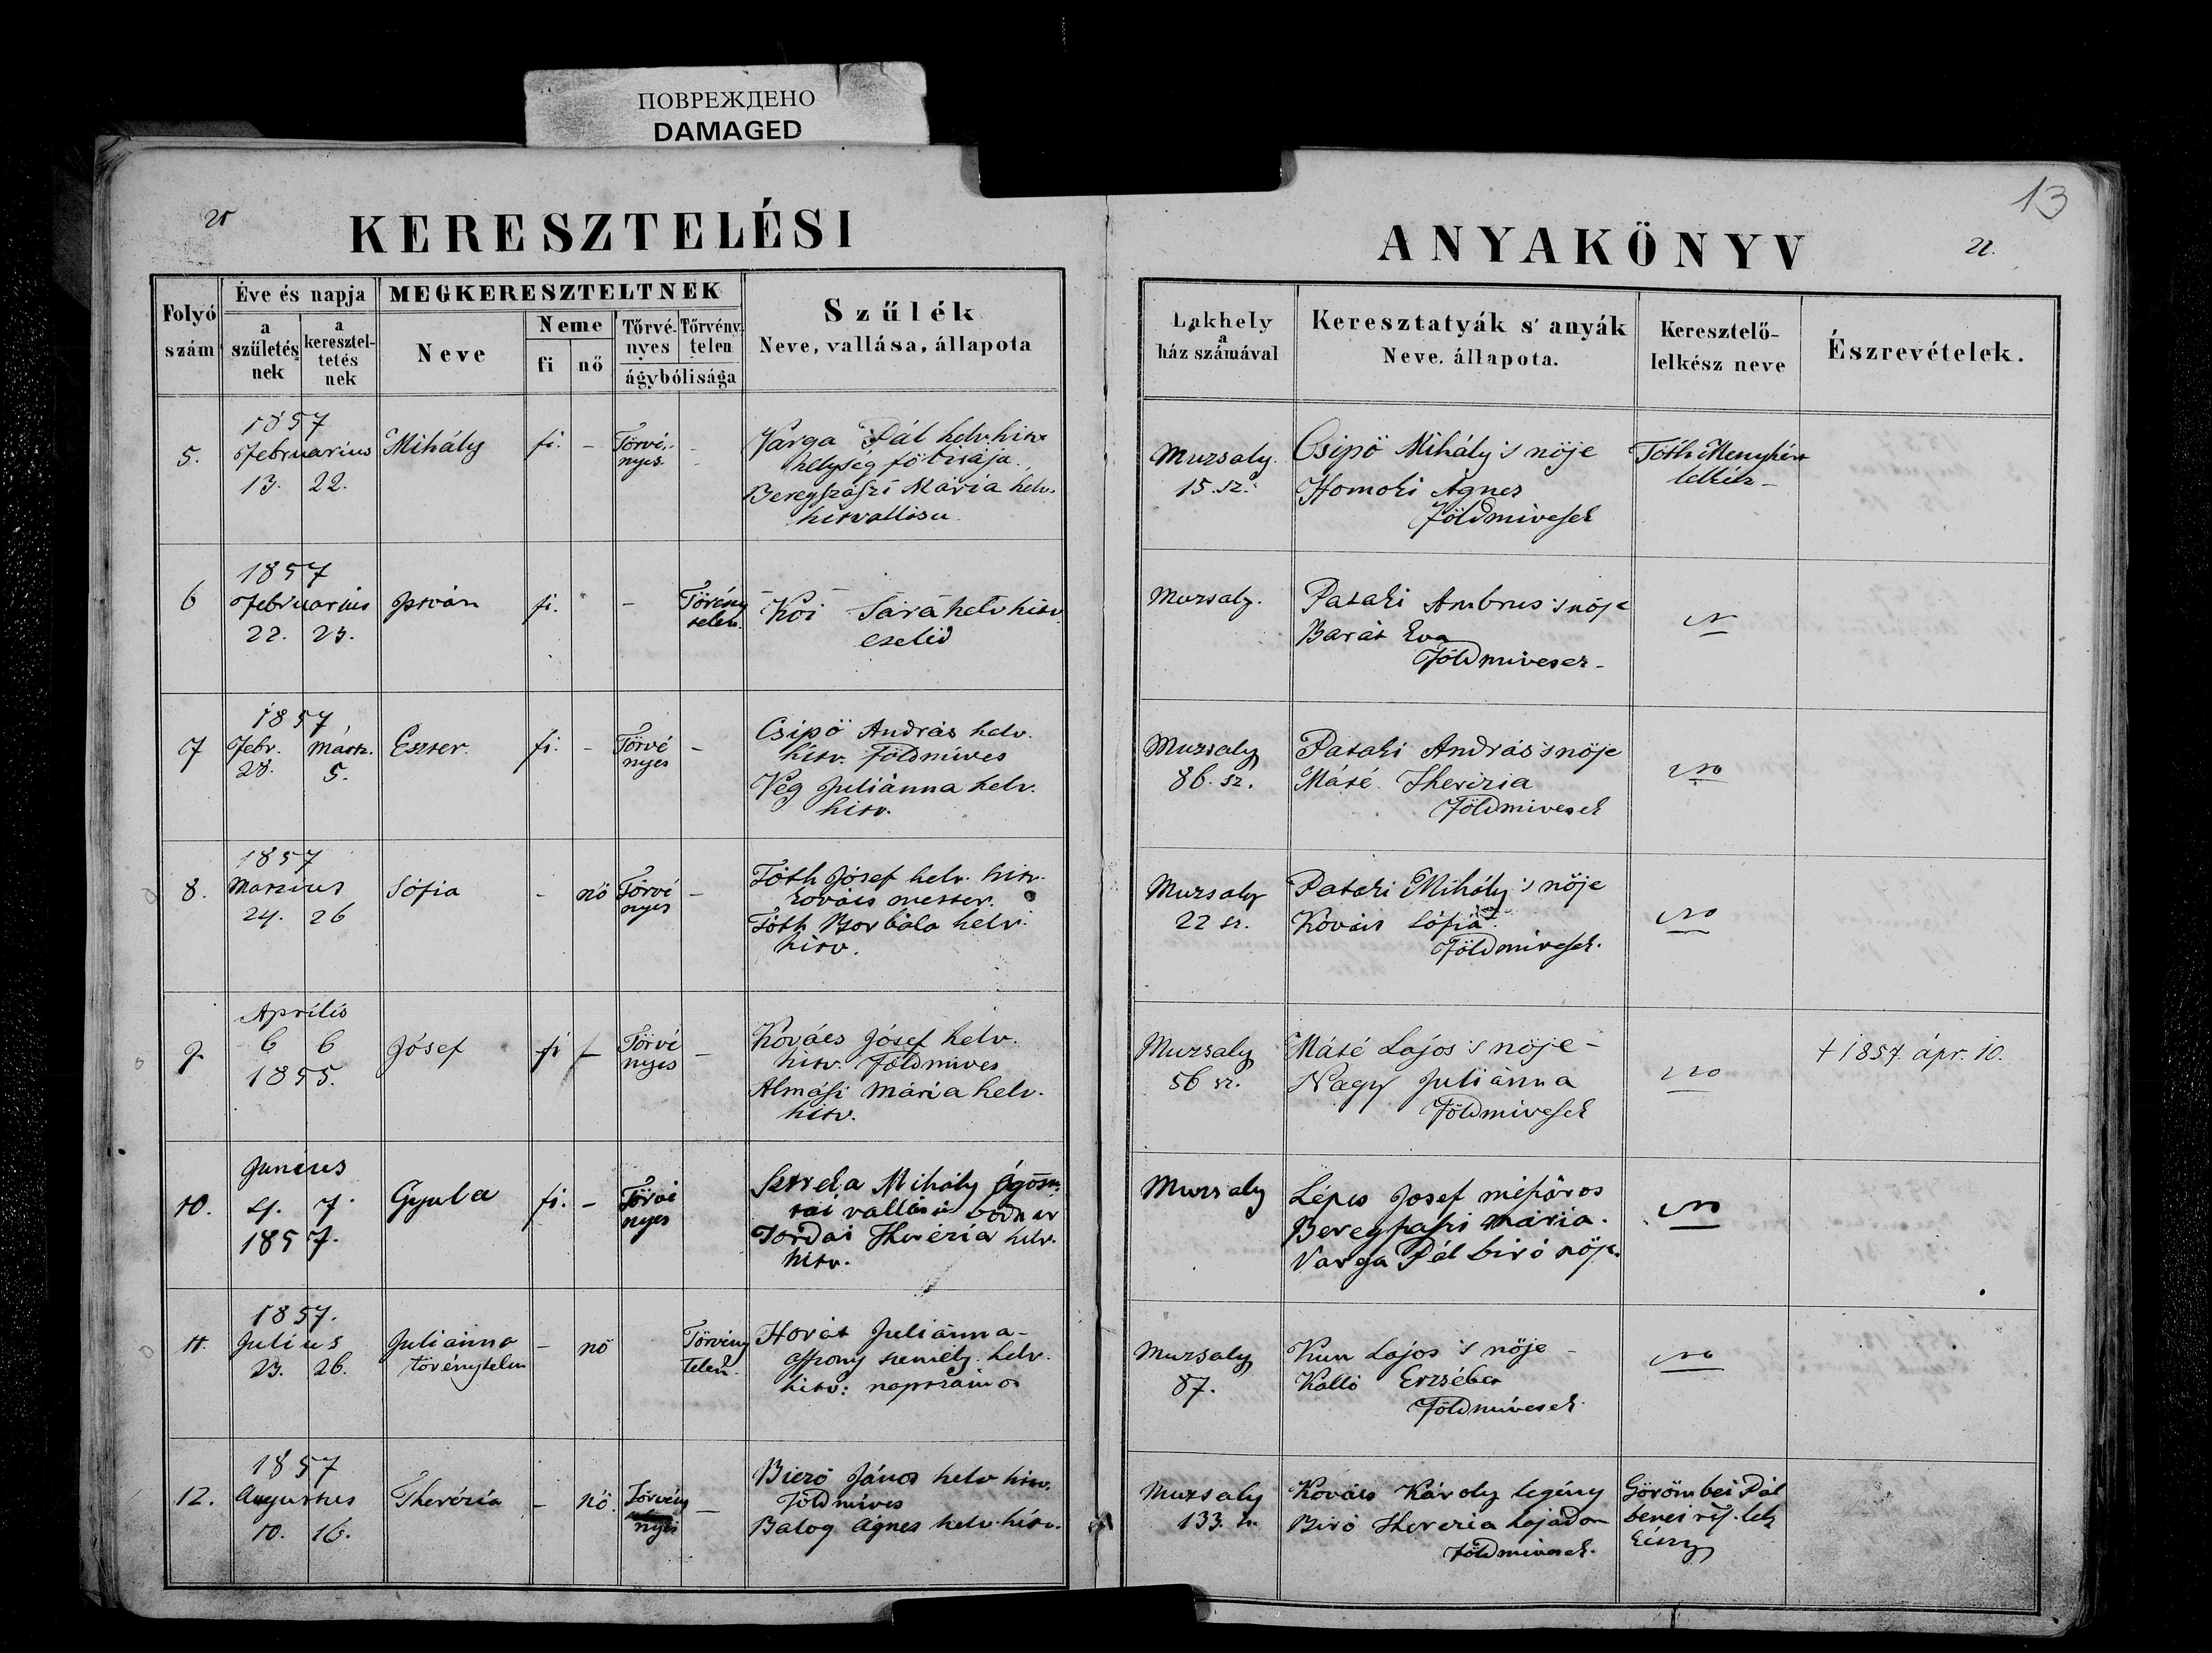 ПОВРЕЖДЕНО
DAMAGED
13
KERESZTELÉSI
ANYAKÖNYV
21.
Folyó szám
Éve és napja
a születés nek
a keresztel- tetés nek
MEGKERESZTELTNEK
Neve
Neme
fi
nő
Törvé- nyes
Törvény- telen
ágybólisága
Szűlék
Neve, vallása, állapota
Lakhely
a
ház számával
Keresztatyák s' anyák
Neve, állapota.
Keresztelő-
lelkész neve
Észrevételek.
5.
1857
Februarius
13. 22.
Mihály
fi.
-
Törvé-
nyes
-
Varga Pál helv. hitv.
helység főbirája.
Beregszászi Mária helv.
hitvallásu
Muzsaly.
15. sz.
Csipö Mihály 's nöje
Homoki Ágnes
Földmivesek
Tóth Menyhért
lelkész -
6
1857
Februarius
22. 23.
István
fi.
-
Törvény
telen
Koi Sára helv hitv
cseléd
Muzsaly.
Pataki Ambrus 's nöje
Barát Éva
Földmivesek -
7
1857
Febr. Márt.
28. 5.
Eszter
fi.
-
Törvé
nyes
-
Csipö András helv.
hitv. Földmives
Vég Juliánna helv.
hitv.
Muzsaly
86. sz.
Pataki András 's nöje
Máté Therézia
Földmivesek
8.
1857
Martius
24. 26
Sófia
-
nö
Törvé
nyes
-
Tóth Jósef helv. hitv.
kovács mester.
Tóth Borbála helv.
hitv.
Muzsaly
22 sz.
Pataki Mihály 's nöje
Kovács Sófia
Földmivesek.
9.
Aprilis
6 6
1855.
Jósef
fi
-
Törvé
nyes
-
Kovács Jósef helv.
hitv. Földmives
Almási Mária helv.
hitv.
Muzsaly
56 sz.
Máté Lajos 's nöje -
Nagy Juliánna
Földmivesek
† 1857. ápr. 10.
10.
Junius
4. 7.
1857.
Gyula
fi.
-
Törvé
nyes
Mihály ágos
tai vallás
Tordai Therézia helv.
hitv.
Muzsaly
Lépes Josef mészáros
Beregszászi Mária.
Varga Pál biró nöje.
11.
1857.
Julius
23. 26.
Juliánna
törvénytelen
-
nö
Törvény
telen.
Horát Juliánna -
asszony személy. helv.
hitv: napszámos
Muzsaly
87.
Kun Lajos 's nöje -
Kalló Erzsébet
Földmivesek
12.
1857
Augustus
10. 16.
Therézia
-
nö.
Törvény
nyes
-
Biró János helv hitv.
Földmives
Balog Ágnes helv. hitv.
Muzsaly
133. sz.
Kovács Károly legény
Biró Therezia hajadon
földmivesek.
Görömbei Pál
benei ref. lelk